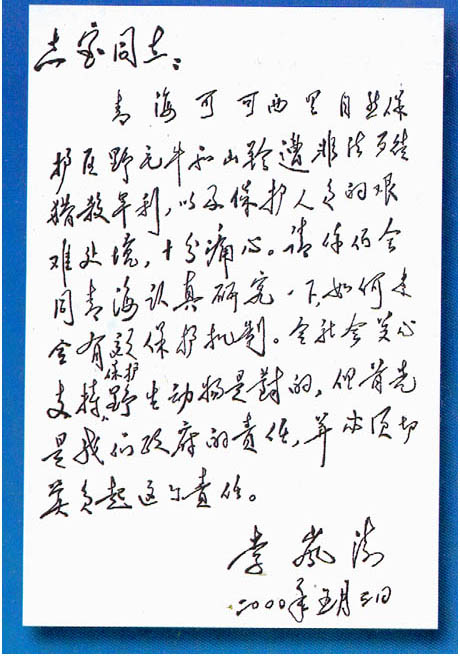 志宝同志：
青海可可西里自然保
护区野毛牛和山羚遭非法歹徒
猎杀牟利，以及保护人员的艰
难处境，十分痛心。请你们会
同青海认真研究一下，如何建
全有效保护机制。全社会关心
支持保护野生动物是對的，但首先
是我们政府的责任，并必须切
实负起这个责任。
李岚清
2000年五月三日